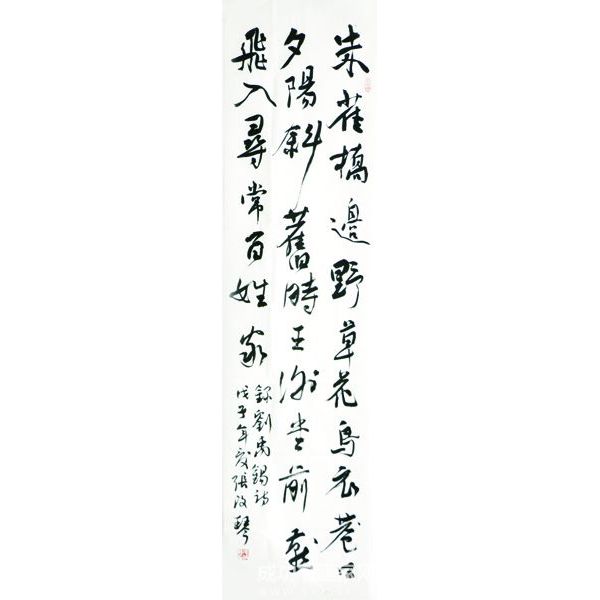 朱雀橋邊野草花烏衣巷口
夕陽斜舊時王謝堂前燕
飛入尋常百姓家
錄劉禹錫詩
戊子年夏張改琴